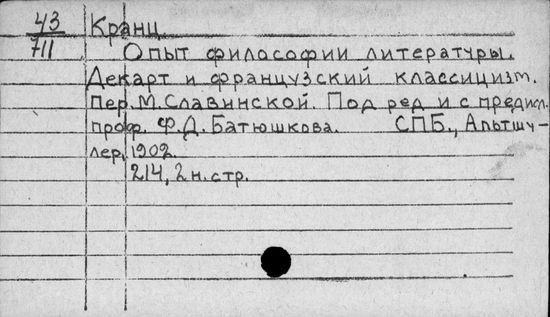 43
711
Кранц
Опыт философии литературы.
Декарт и французский классицизм.
Пер. М. Славинской. Под ред и с предисл.
проф. Ф.Д. Батюшкова. СПБ., Альтшу-
лер, 1902.
214, 2 н. стр.